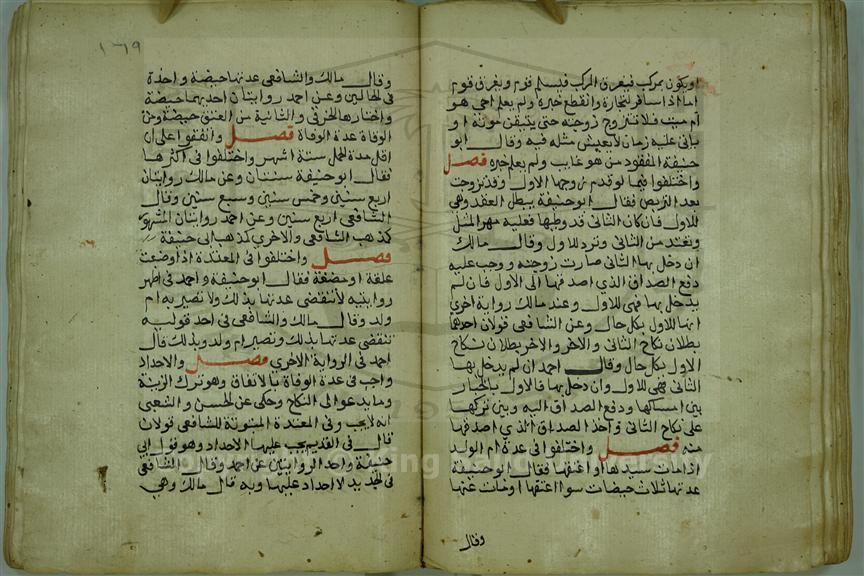 او يكون بمركب فيغرق المركب فيسلم قوم ويغرق قوم
اما اذا سافر لتجارة وانقطع خبره ولم يعلم احي هو
ام ميت فلا تتزوج زوجته حتى يتيقن موته او
ياتي عليه زمان لا يعيش مثله فيه وقال ابو
حنيفة المفقود من هو غايب ولم يعلم خبره فصل
واختلفوا فيما لو قدم زوجها الاول وقد تزوجت
بعد التربص فقال ابو حنيفة يبطل العقد وهي
للاول فان كان الثاني قد وطيها فعليه مهر المثل
وتعتد من الثاني وترد للاول وقال مالك
ان دخل بها الثاني صارت زوجته ووجب عليه
دفع الصداق الذي اصدقها الى الاول فان لم
يدخل بها فهي للاول وعند مالك رواية اخرى
انها للاول بكل حال وعن الشافعي قولان احدها
بطلان نكاح الثاني والاخر والاخر بطلان نكاح
الاول بكل حال وقال احمد ان لم يدخل بها
الثاني فهي للاول وان دخل بها فالاول بالخيار
بين امساكها ودفع الصداق اليه وبين تركها
على نكاح الثاني واخذ الصداق الذي اصدقها
منه فصل واختلفوا في عدة ام الولد
اذا مات سيدها او اعتقها فقال ابو حنيفة
عدتها ثلاث حيضات سوا اعتقها او مات عنها
وقال
١٦٩
وقال مالك والشافعي عدتها حيضة واحدة
في الحالين وعن احمد روايتان احديهما حيضة
واختارها الخرقي والثانية من العتق حيضة ومن
الوفاة عدة الوفاة فصل واتفقوا على ان
اقل مدة الحمل ستة اشهر واختلفوا في اكثرها
فقال ابو حنيفة سنتان وعن مالك روايتان
اربع سنين وخمس سنين وسبع سنين وقال
الشافعي اربع سنين وعن احمد روايتان المشهور
كمذهب الشافعي والاخري كمذهب ابي حنيفة
فصل واختلفوا في المعتدة اذا وضعت
علقة او مضغة فقال ابو حنيفة واحمد في اظهر
روايتيه لا تنقضي عدتها بذلك ولا تصير به ام
ولد وقال مالك والشافعي في احد قوليه
تنقضي عدتها بذلك وتصير ام ولد وبذلك قال
احمد في الرواية الاخري فصل والاحداد
واجب في عدة الوفاة بالاتفاق وهو ترك الزينة
وما يدعو الى النكاح وحكي عن الحسن والشعبي
انه لا يجب وفي المعتدة المبتوتة للشافعي قولان
قال في القديم يجب عليها الاحداد وهو قول ابي
حنيفة واحد الروايتين عن احمد وقال الشافعي
في الجديد لا احداد عليها وبه قال مالك وهي